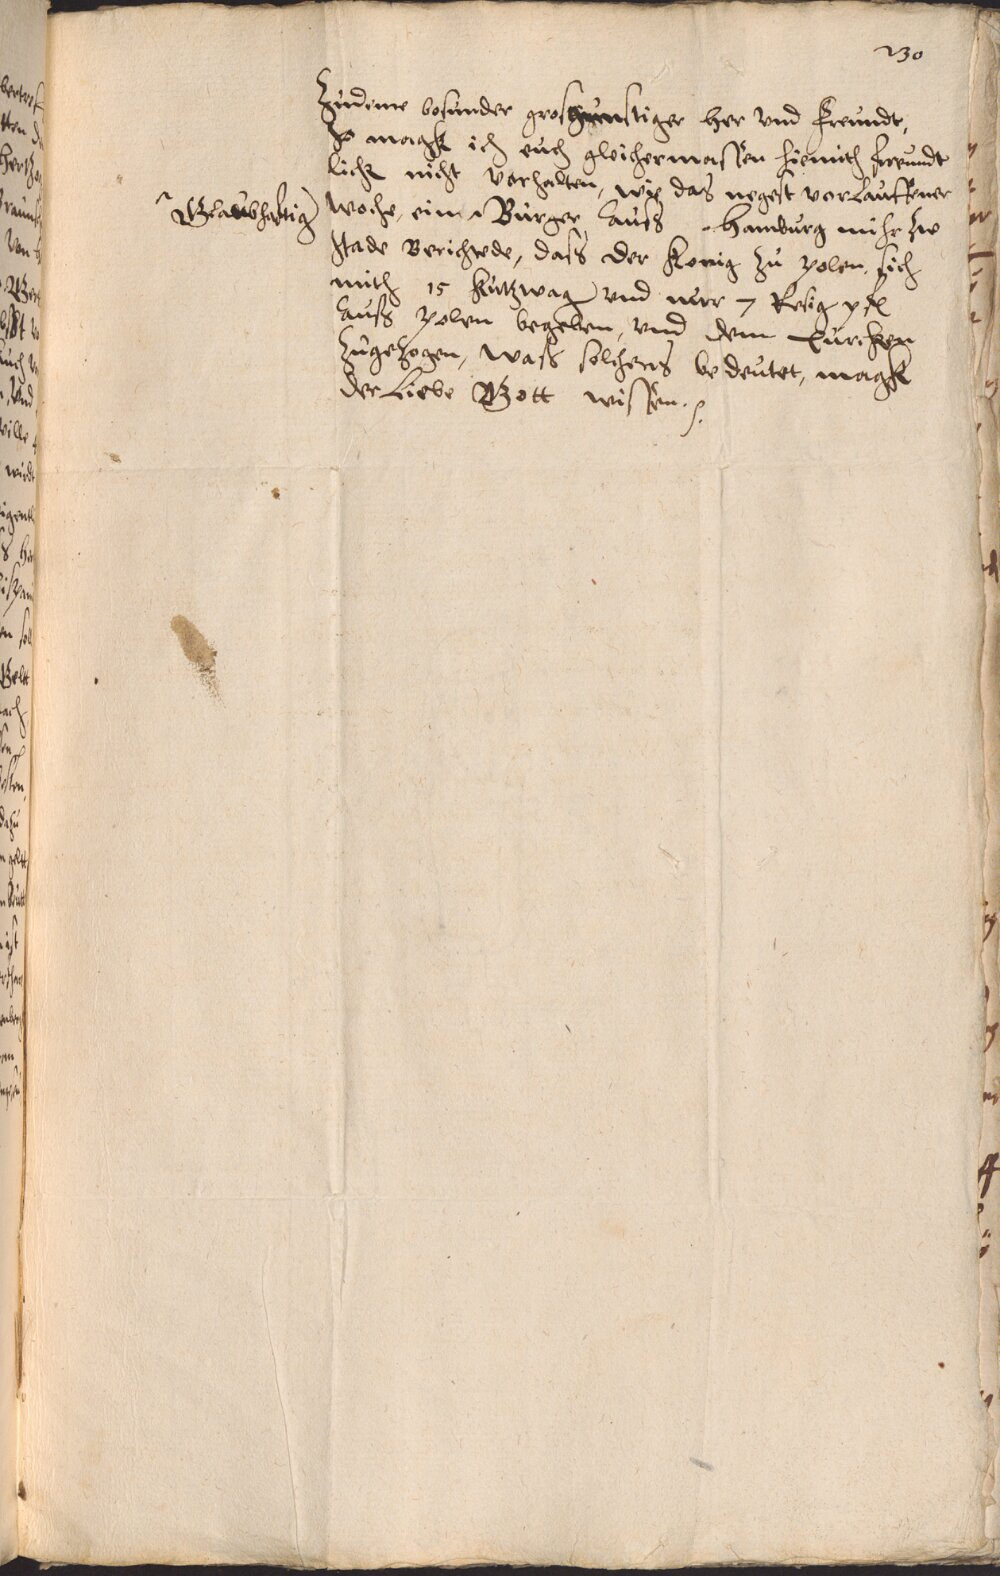 230
Zudeme besunder grosgunstiger her vnd freundt,
So magk ich euch gleichermassen hiemith freundt
lich nicht verhalten, wie das negest verlauffener
Glaubhafftig
woche, ein Burger, auß Hamburg mihr zu
stade Berichtede, dass der Konig zu polen sich
mith 15 kutzwag vnd nurr 7 Resig pfe
auß polen begeben, vnd dem Turcken
zugezogen, waß solchens bedeutet, magk
der Liebe Gott wissen.